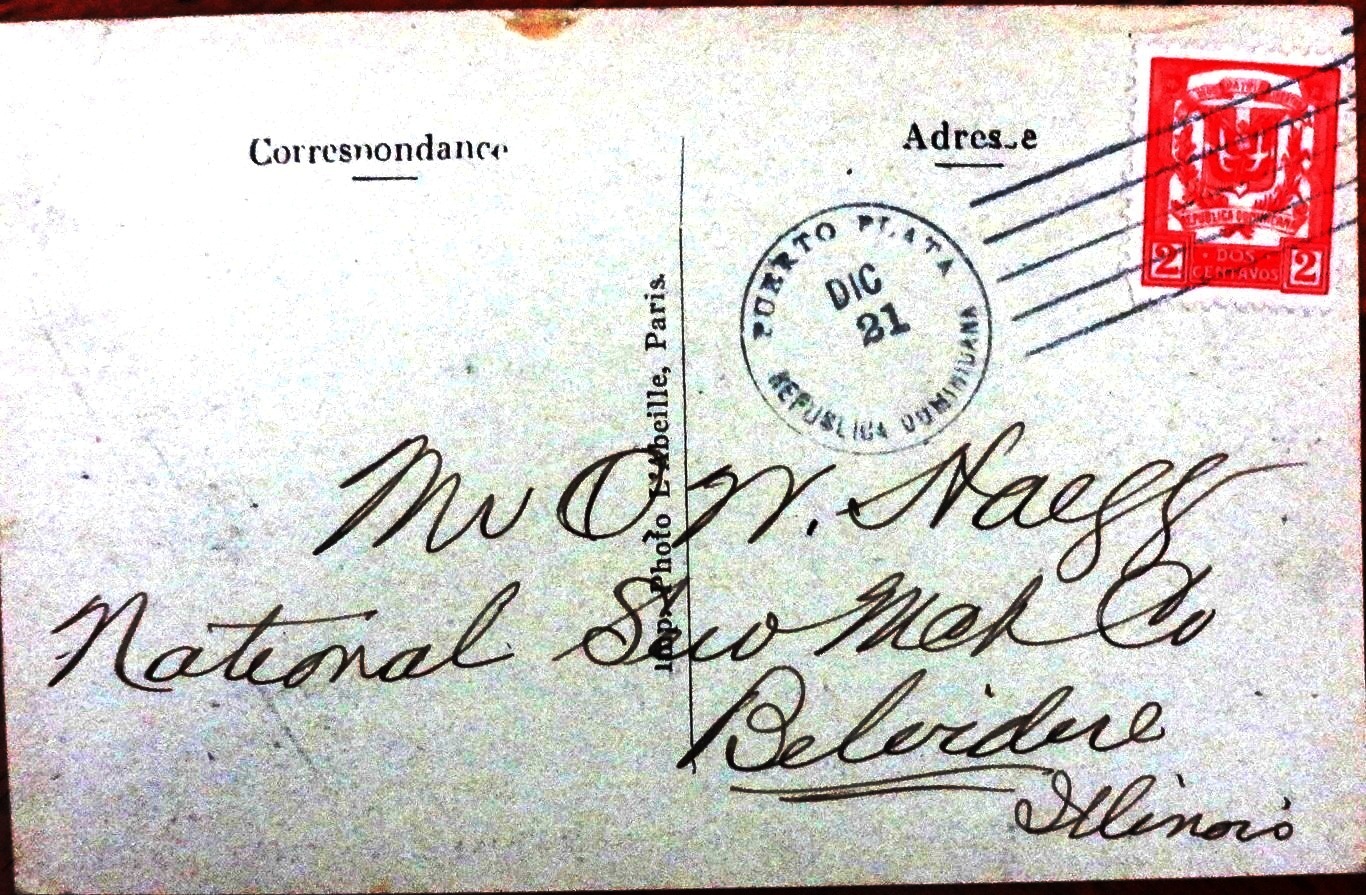 Correspondance
Adresse
PUERTO PLATA
DIC
21
REPUBLICA DOMINICANA
REPUBLICA DOMINICANA
2 DOS CENTAVOS 2
Imp. Photo L'Abeille, Paris.
Mr O. W. Naegg
National Sew Mch Co
Belvidere
Illinois